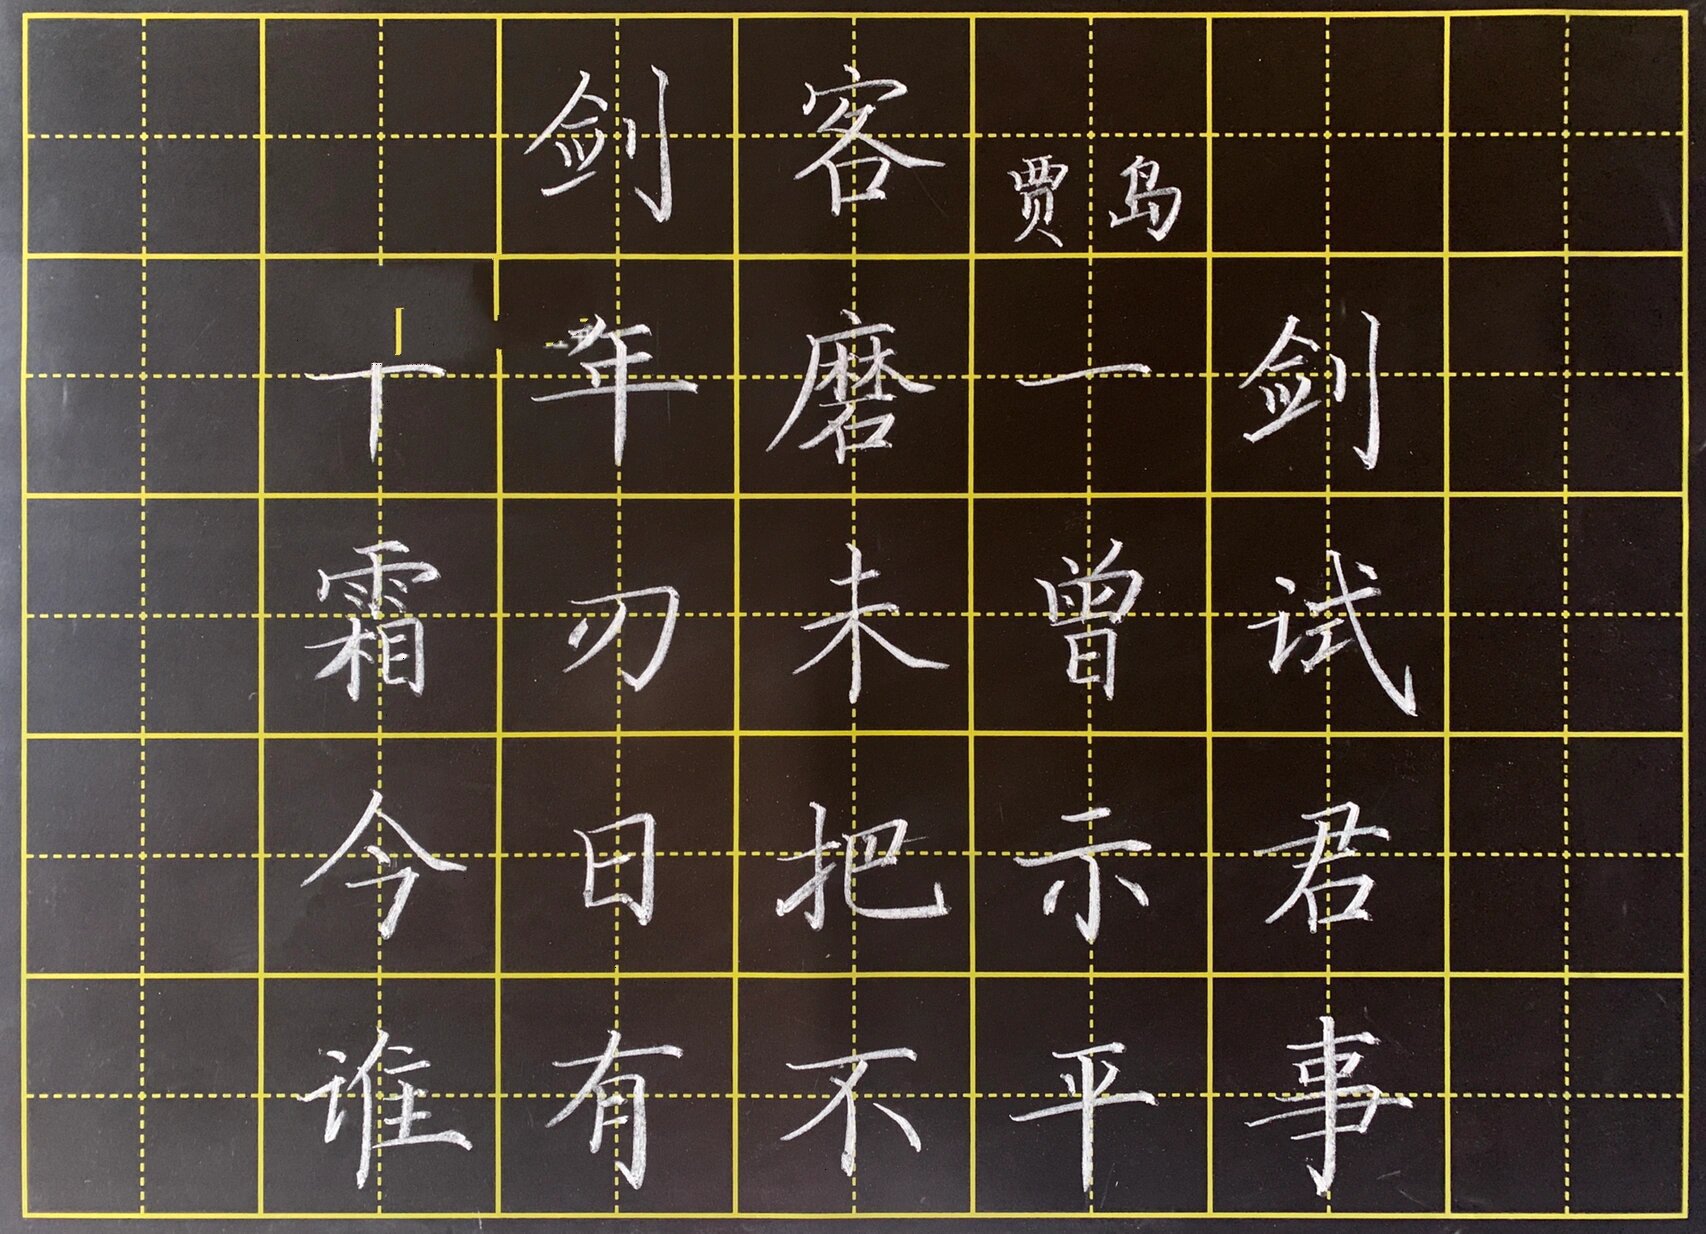 剑客 贾岛
年磨一剑
霜刃未曾试
今日把示君
谁有不平事